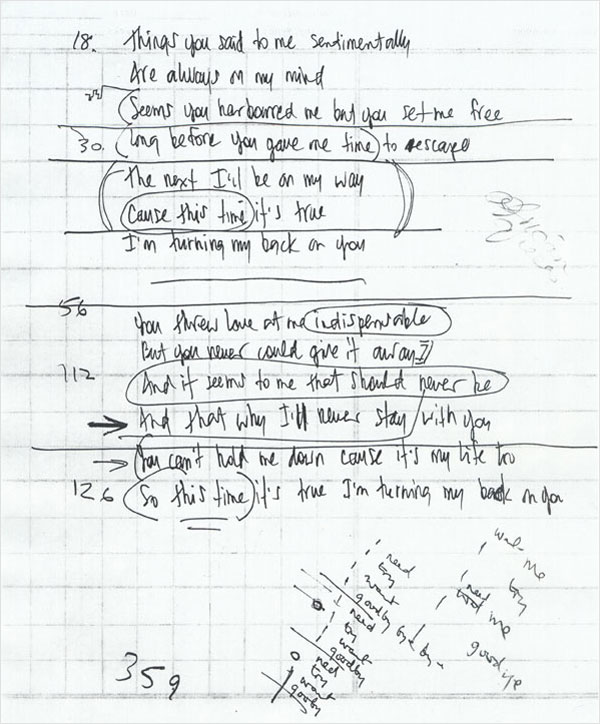 18. Things you said to me sentimentally
Are always on my mind
Seems you harboured me but you set me free
30. long before you gave me time to escape
The next I'll be on my way
Cause this time it's true
I'm turning my back on you
56
You threw love at me indispensable
But you never could give it away
112
And it seems to me that should never be
And that why I'll never stay with you
You can't hold me down cause it's my life too
126 So this time it's true I'm turning my back on you
need
try
want
goodby bye bye
need
try
want
goodby
need
try
want
goodby
me
try
need
me
goodbye
359